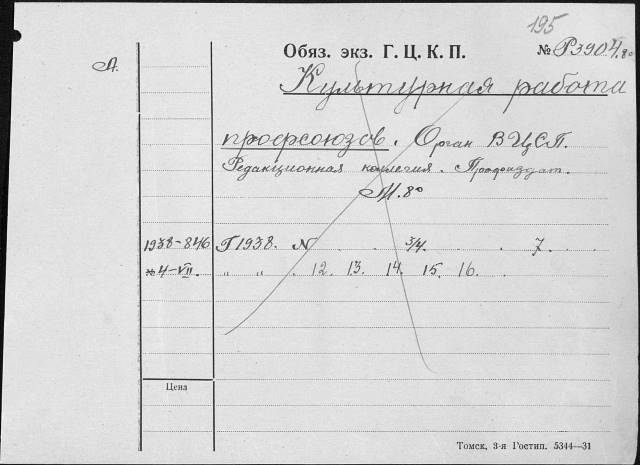 195
Обяз. экз. Г. Ц. К. П. № Р3904.8°
А.
Культурная работа
профсоюзов. Орган ВЦСП.
Редакционная коллегия. Профиздат.
М. 8°
1938-846 Г 1938. N . . 3/4. . . 7. .
4-VII. " " . 12. 13. 14. 15. 16. .
Цена
Томск, 3-я Гостип. 5344—31